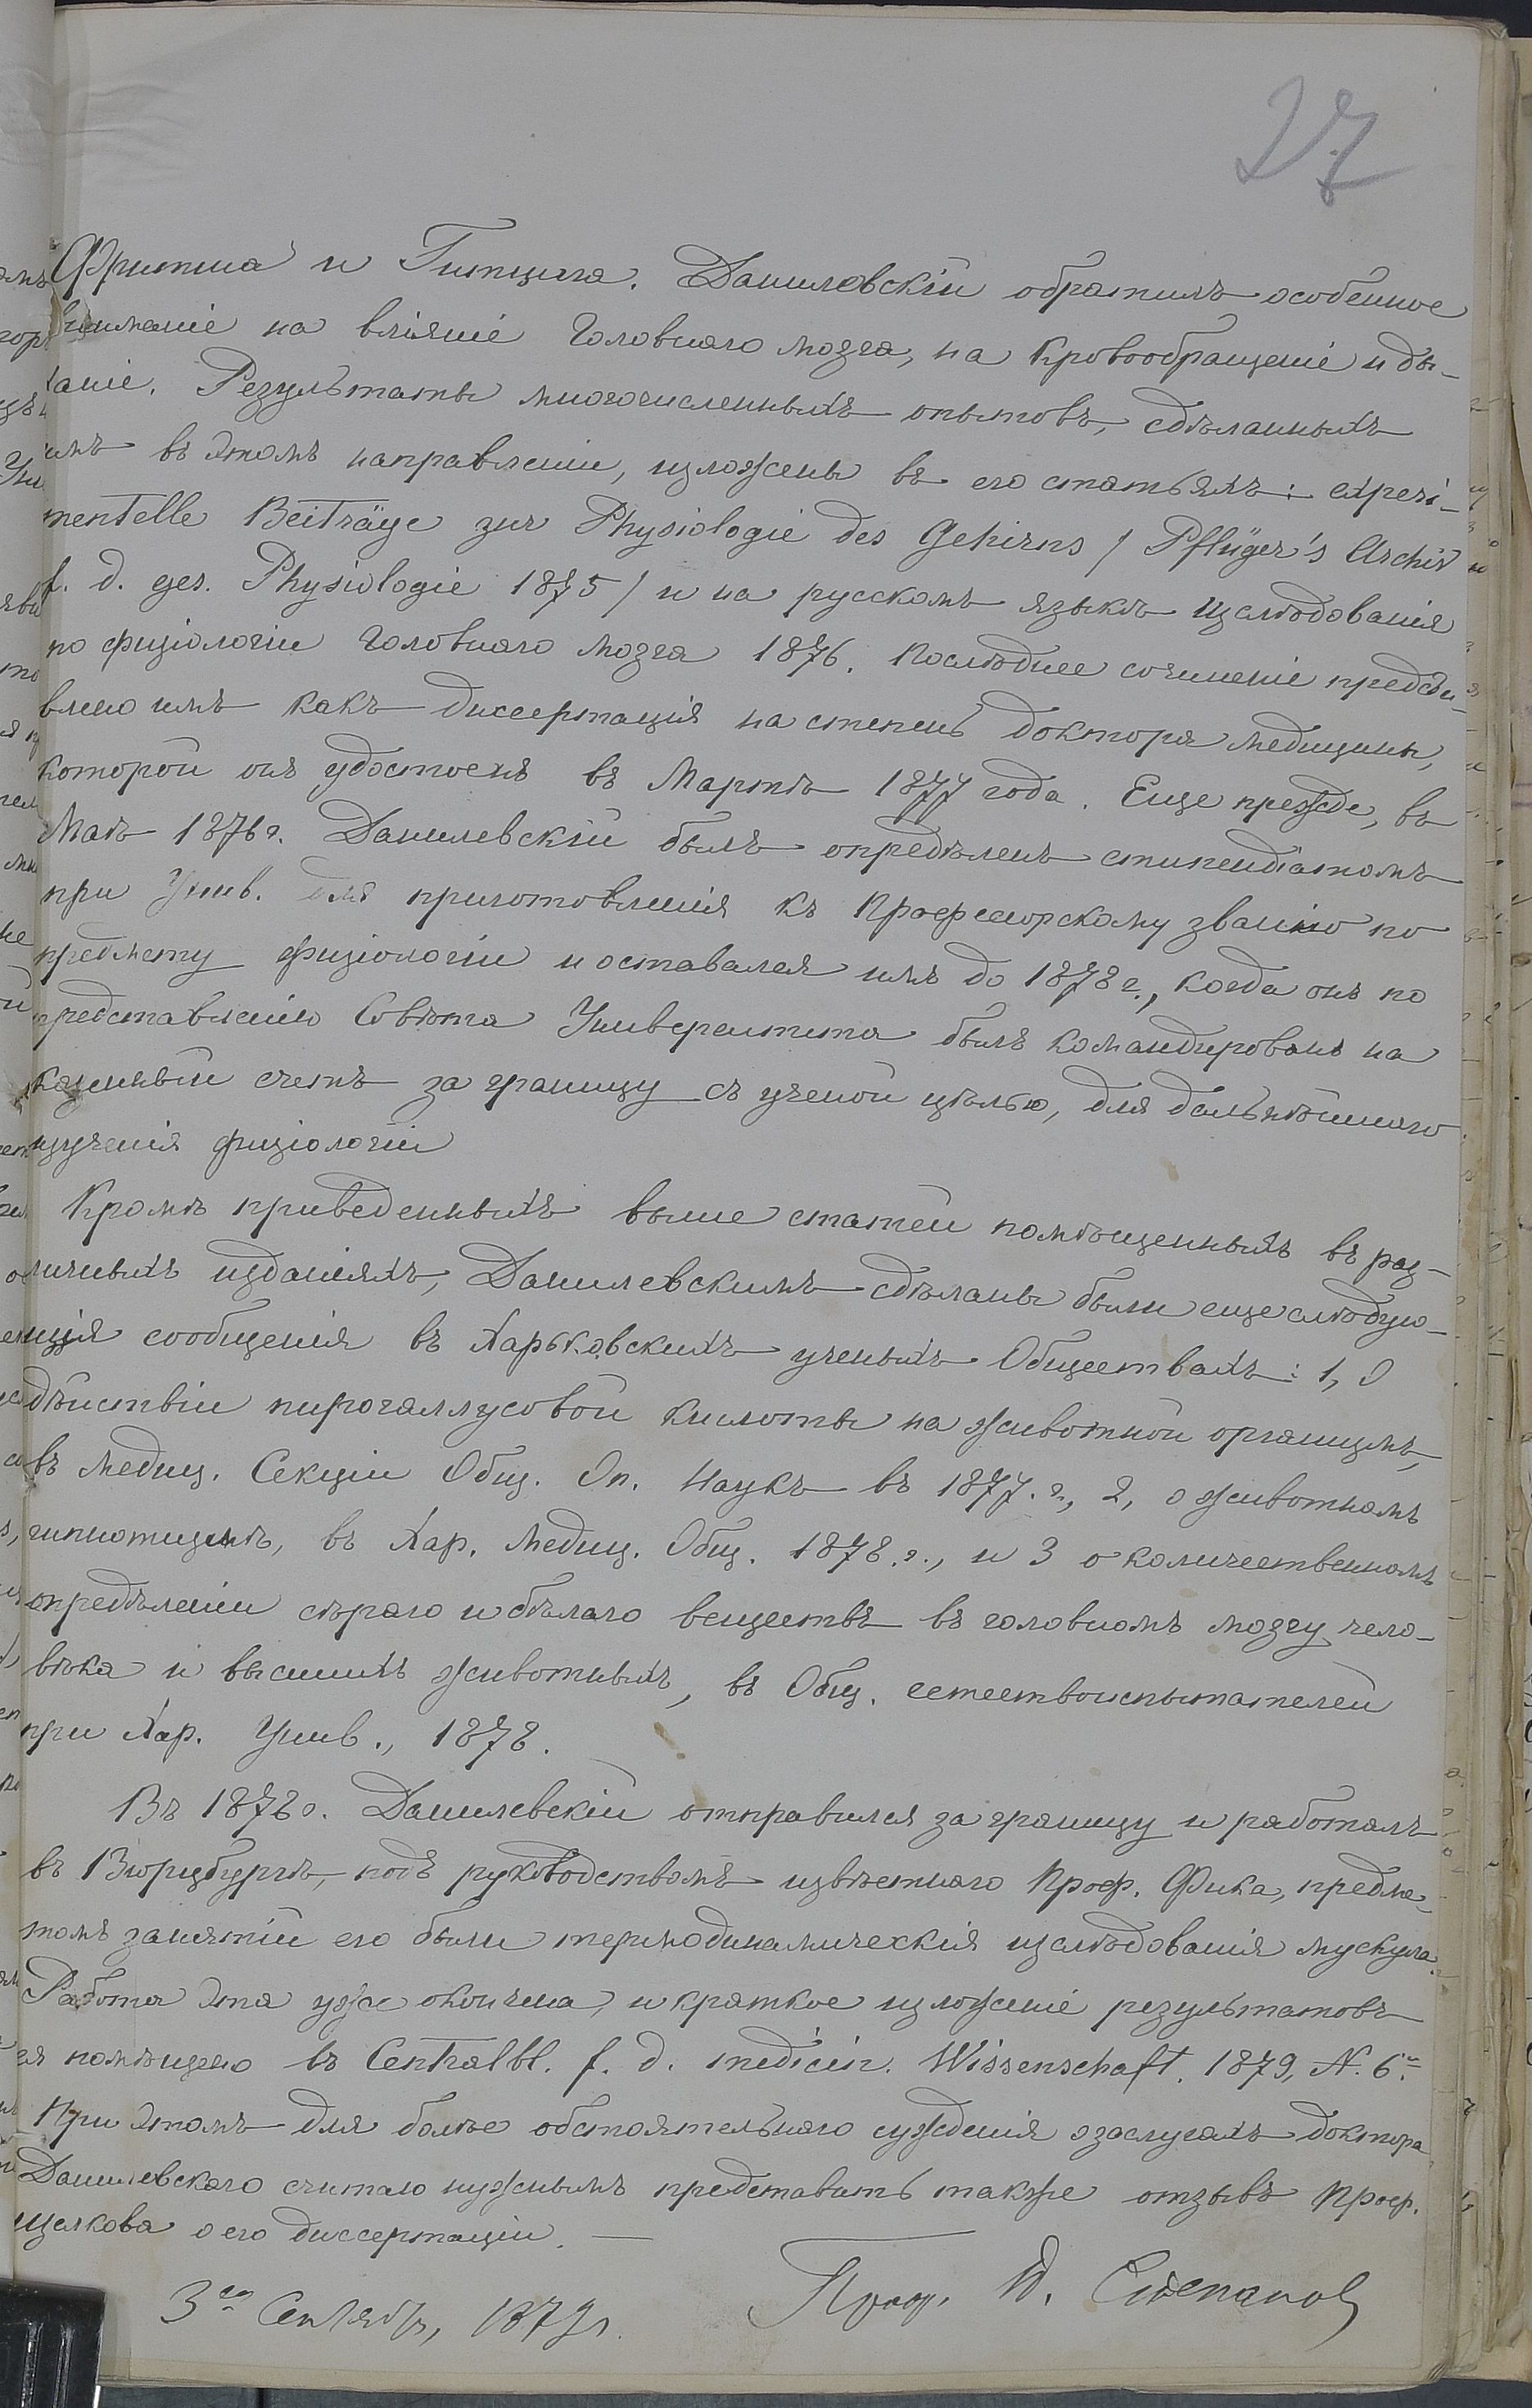 27
Фритша и Гитцига. Данилевскій обратилъ особенное
вниманіе на вліяніе головнаго мозга, на кровообращеніе и ды-
ханіе. Результаты многочисленныхъ опытовъ, сдѣланныхъ
имъ въ этомъ направленіи, изложены въ его статьяхъ: experi-
mentelle Beiträge zur Physiologie des Gehirns / Pflüger's Archiv
f. d. ges. Physiologie 1875 / и на русскомъ языкѣ Изслѣдованія
по физіологіи головнаго мозга 1876. Послѣднее сочиненіе предста-
влено имъ какъ диссертація на степень доктора медицины,
которой онъ удостоенъ въ Мартѣ 1877 года. Еще прежде, въ
Маѣ 1876 г. Данилевскій былъ опредѣленъ стипендіатомъ
при Унив. для приготовленія къ Профессорскому званію по
предмету физіологіи и оставался имъ до 1878 г., когда онъ по
представленію Совѣта Университета былъ командированъ на
казенный счетъ за границу съ ученой цѣлью, для дальнѣйшаго
изученія физіологіи
Кромѣ приведенныхъ выше статей помѣщенныхъ въ раз-
личныхъ изданіяхъ, Данилевскимъ сдѣланы были еще слѣдую-
щія сообщенія въ Харьковскихъ ученыхъ Обществахъ: 1, О
дѣйствіи пирогаллусовой кислоты на животной организмъ,
въ Медиц. Секціи Общ. Оп. Наукъ въ 1877. г., 2, о животномъ
гипнотизмѣ, въ Хар. Медиц. Общ. 1878. г., и 3 о количественномъ
опредѣленіи сѣраго и бѣлаго веществъ въ головномъ мозгу чело-
вѣка и высшихъ животныхъ, въ Общ. естествоиспытателей
при Хар. Унив., 1878.
Въ 1878 г. Данилевскій отправился за границу и работалъ
въ Вюрцбургѣ, подъ руководствомъ извѣстнаго Проф. Фика, предме-
томъ занятій его были термодинамическія изслѣдованія мускула.
Работа эта уже окончена, и краткое изложеніе результатовъ
ея помѣщено въ Centralbl. f. d. medicin. Wissenschaft. 1879, N. 6.
При этомъ для болѣе обстоятельнаго сужденія о заслугахъ доктора
Данилевскаго считаю нужнымъ представить также отзывъ Проф.
Щелкова о его диссертаціи. —
3го Сентябр, 1879 г.
Проф. П. Степановъ